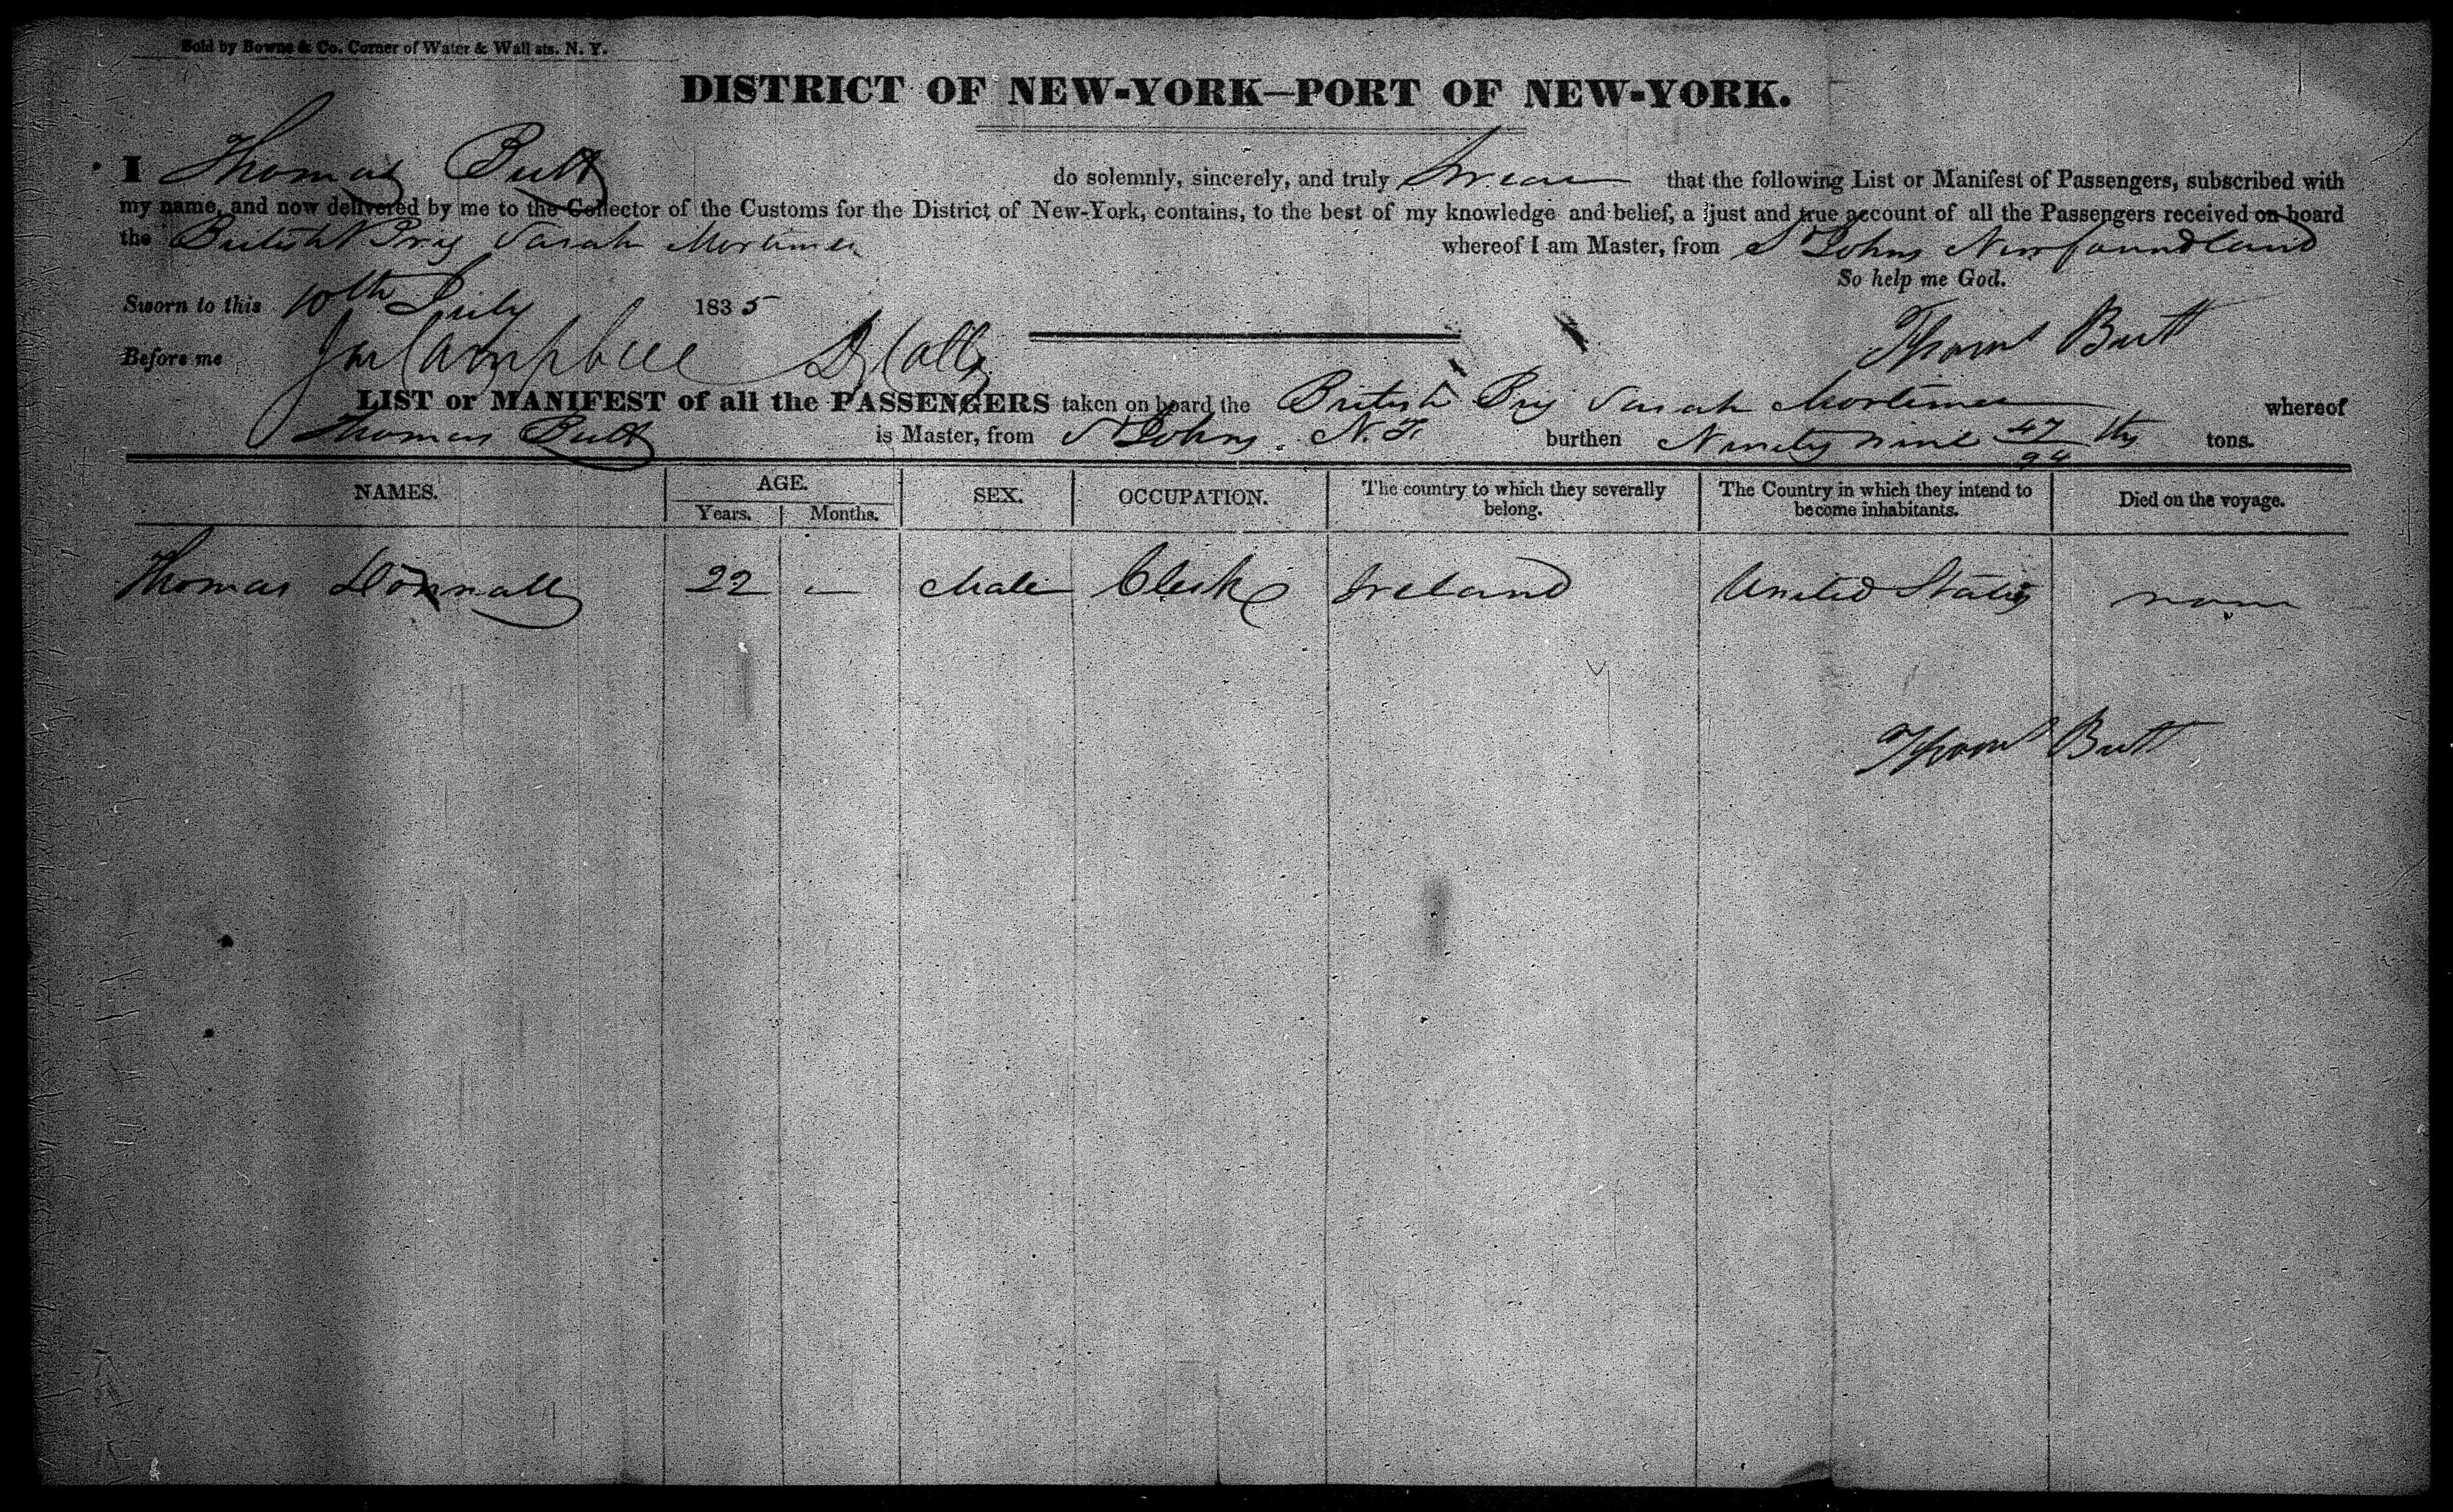 Sold by Bowne & Co. Corner of Water & Wall sts. N. Y.
DISTRICT OF NEW-YORK—PORT OF NEW-YORK.
I Thomas Butt do solemnly, sincerely, and truly Swear that the following List or Manifest of Passengers, subscribed with
my name, and now delivered by me to the Collector of the Customs for the District of New-York, contains, to the best of my knowledge and belief, a just and true account of all the Passengers received on board
the British Brig Sarah Mortimer whereof I am Master, from St Johns Newfoundland
So help me God.
Sworn to this 10th July 1835
Before me Campbell D Coll Thoms Butt
LIST or MANIFEST of all the PASSENGERS taken on board the British Brig Sarah Mortimer whereof
Thomas Butt is Master, from St Johns N. F. burthen Ninety nine 47/94 ths tons.
NAMES. AGE. SEX. OCCUPATION. The country to which they severally belong. The Country in which they intend to become inhabitants. Died on the voyage.
Years. Months.
Thomas Donnally 22 — Male Clerk Ireland United States none
Thoms Butt